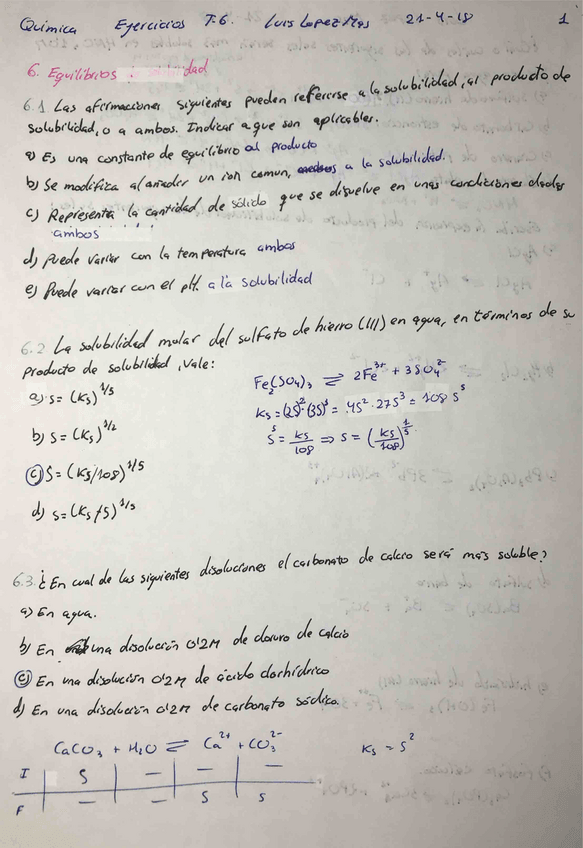 Química Ejercicios T.6. Luis Lopez Mas 21-4-18 1
6. Equilibrios . solubilidad
6.1 Las afirmaciones siguientes pueden referirse a la solubilidad, al producto de
solubilidad, o a ambos. Indicar a que son aplicables.
a) Es una constante de equilibrio al producto
b) Se modifica al añadir un ion comun, a la solubilidad.
c) Representa la cantidad de sólido que se disuelve en unas condiciones dadas
ambos
d) Puede variar con la temperatura ambos
e) Puede variar con el pH. a la solubilidad
6.2 La solubilidad molar del sulfato de hierro (III) en agua, en términos de su
producto de solubilidad, vale:
a) s = (Ks)^1/5
Fe2(SO4)3 ⇌ 2Fe^3+ + 3SO4^2-
Ks = (2S)^2·(3S)^3 = 4S^2·27S^3 = 108 S^5
b) s = (Ks)^1/2
S^5 = Ks/108 ⇒ S = (Ks/108)^1/5
c) S = (Ks/108)^1/5
d) s = (Ks/5)^1/5
6.3 ¿En cual de las siguientes disoluciones el carbonato de calcio será más soluble?
a) En agua.
b) En una disolución 0'2M de cloruro de calcio
c) En una disolución 0'2M de ácido clorhídrico
d) En una disolución 0'2M de carbonato sódico.
CaCO3 + H2O ⇌ Ca^2+ + CO3^2- Ks = S^2
I S — — —
F — — S S